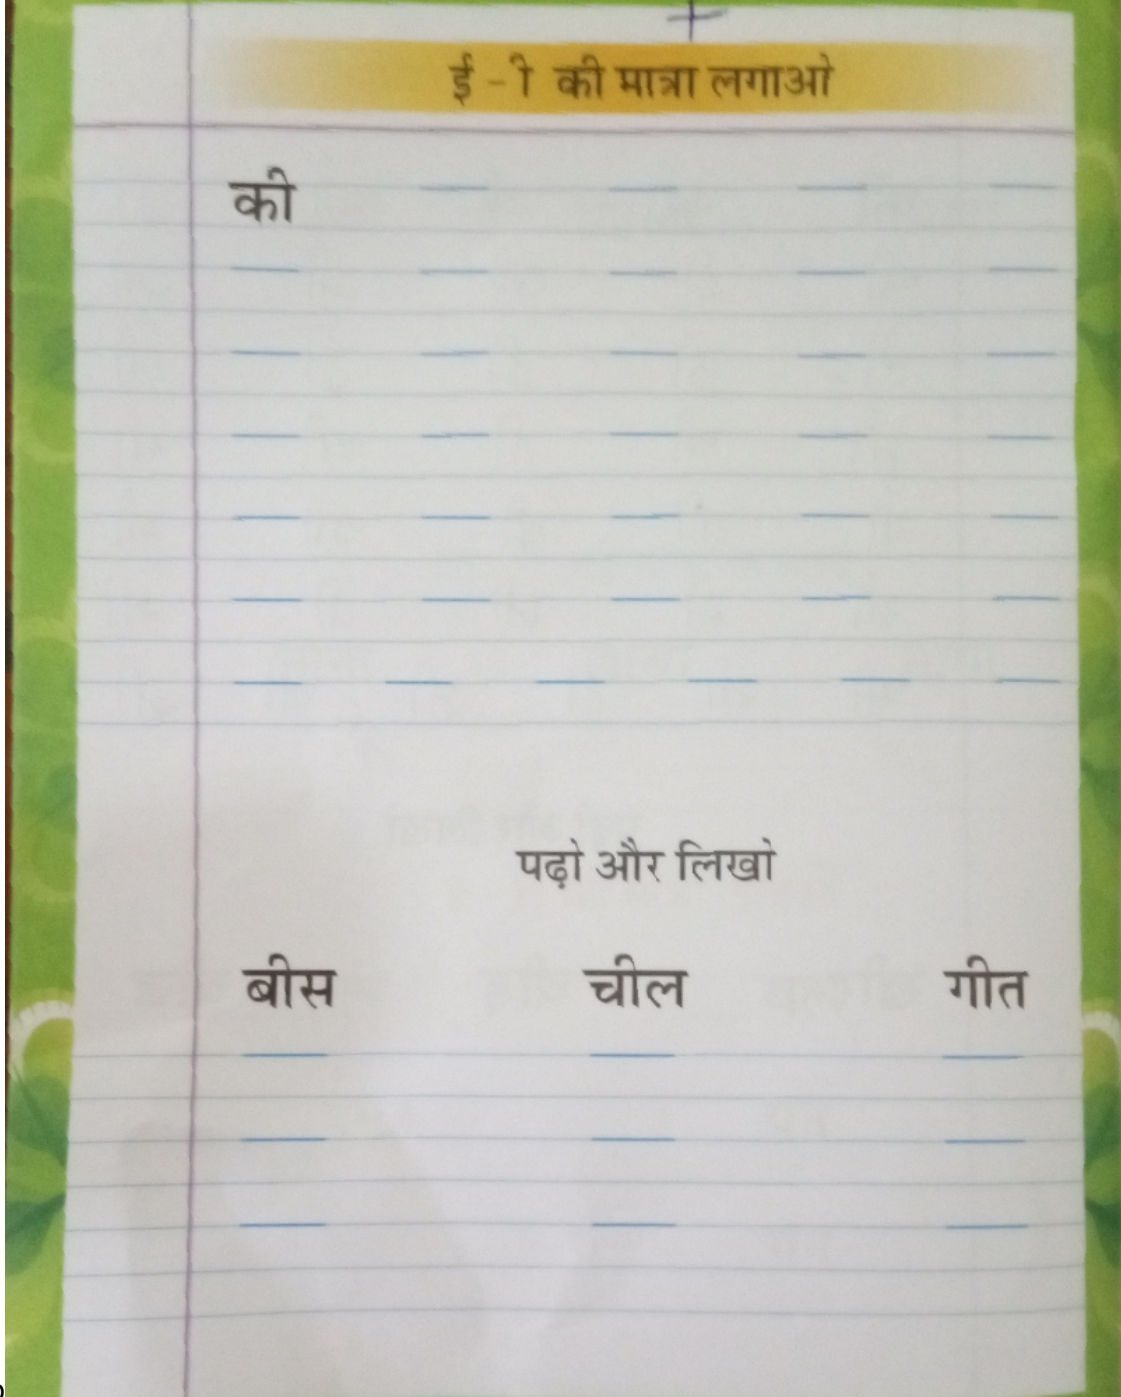 ई - ी की मात्रा लगाओ
की
पढ़ो और लिखो
बीस चील गीत